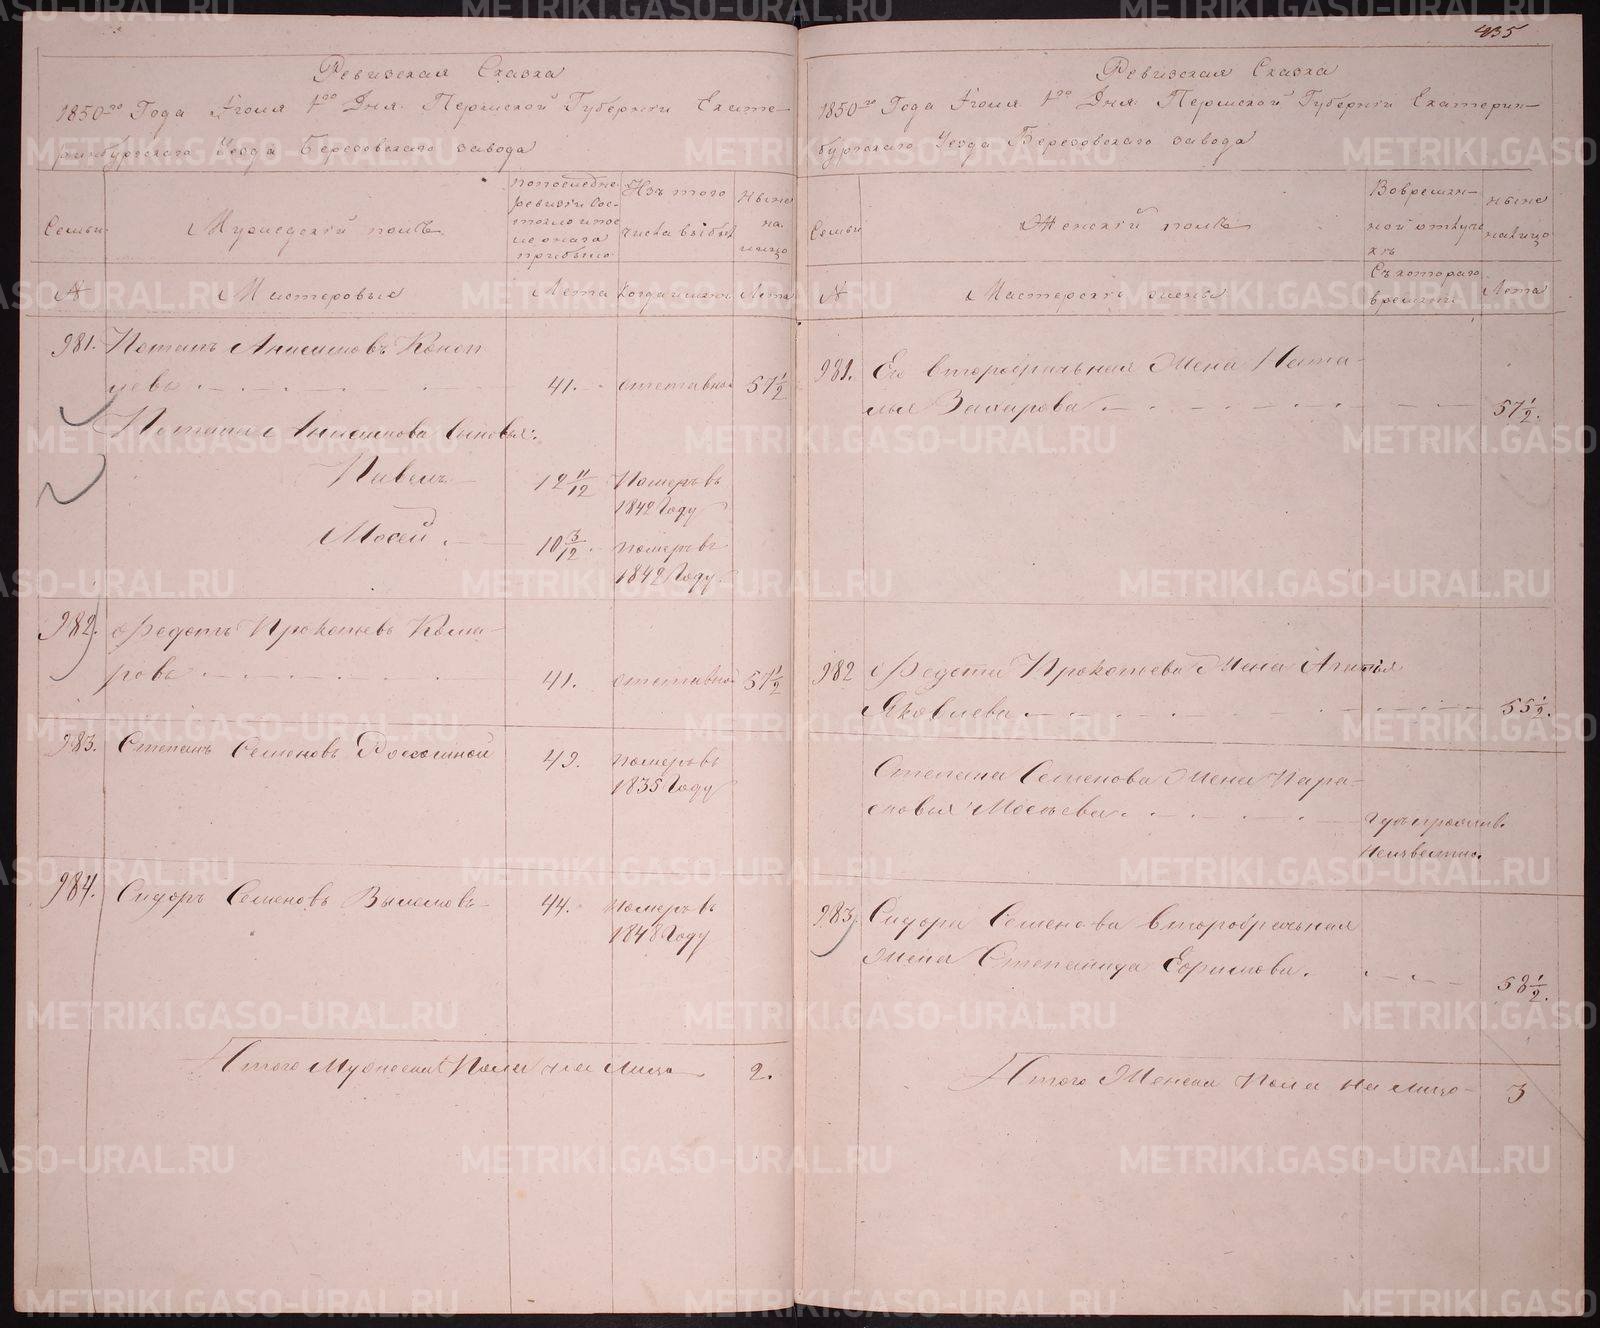 435
Ревизская Сказка
1850го Года Іюля 1го Дня Пермской Губерніи Екате-
ринбургскаго Уезда Березовскаго завода
Семьи
Мужескій полъ
попоследне
ревизіи сос-
тояло и пос
ле оной
прибыло
Изъ того
числа выбыл
ныне
на
лицо
№
Мастеровые
Лета
Когда именно
Лета
981. Потапъ Анисимовъ
41. отставной 57½
Потапа Анисимова сыновья:
Павелъ 12 11/12 Померъ въ
1842 Году
Мосей 10 3/12 померъ въ
1842 Году.
982. Федотъ Прокопьевъ Кома-
ровъ 41. отставной 57½
983. Степанъ Семеновъ
49. померъ въ
1835 Году
984. Сидоръ Семеновъ
44. померъ въ
1848 Году
Итого Мужеска Пола на Лицо 2.
Ревизская Сказка
1850го Года Іюля 1го Дня Пермской Губерніи Екатерин-
бургскаго Уезда Березовскаго завода
Семьи
Женскій полъ
Вовремян-
ной отлуч
къ
ныне
налицо
№
Мастерскія жены
Съ котораго
времени
Лета
981. Его второбрачная Жена Ната-
лья Захарова 57½.
982 Федота Прокопьева Жена Агафья
Яковлева 55½.
Степана Семенова Жена Пара-
сковья Мосеева. Гдѣ прожив.
Неизвестно.
983 Сидора Семенова второбрачная
жена Степанида Ефимова. 58½.
Итого Женска Пола на лицо 3
METRIKI.GASO-URAL.RU